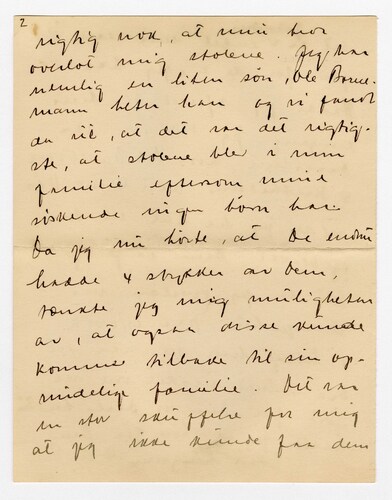 2
rigtig nok, at min bror
overlot mig stolene. Jeg har
nemlig en liten søn, Ole Borne-
mann heter han og vi fandt
da ut, at det var det rigtig-
ste, at stolene blev i min
familie eftersom mine
søskende ingen børn har.
Da jeg nu hørte, at De endnu
hadde 4 stykker av dem,
tænkte jeg mig muligheten
av, at ogsaa disse kunde
komme tilbake til sin op-
rindelige familie. Det var
en stor skuffelse for mig
at jeg ikke kunde faa dem